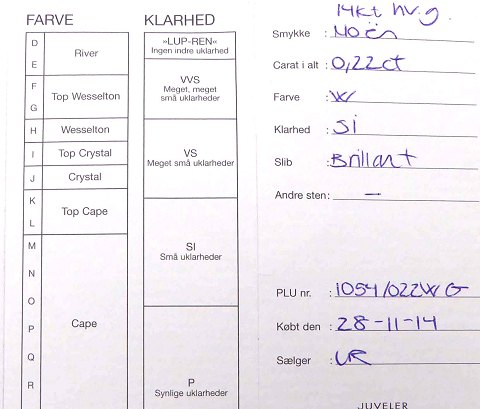 FARVE
D
E
River
F
G
Top Wesselton
H
Wesselton
I
Top Crystal
J
Crystal
K
L
Top Cape
M
N
O
P
Q
R
Cape
KLARHED
»LUP-REN«
Ingen indre uklarhed
VVS
Meget, meget
små uklarheder
VS
Meget små uklarheder
SI
Små uklarheder
P
Synlige uklarheder
14kt hv.g.
Smykke :
Carat i alt : 0,22ct
Farve : W
Klarhed : Si
Slib : Brillant
Andre sten: —
PLU nr. : 1054/022WG
Købt den : 28-11-14
Sælger :
JUVELER